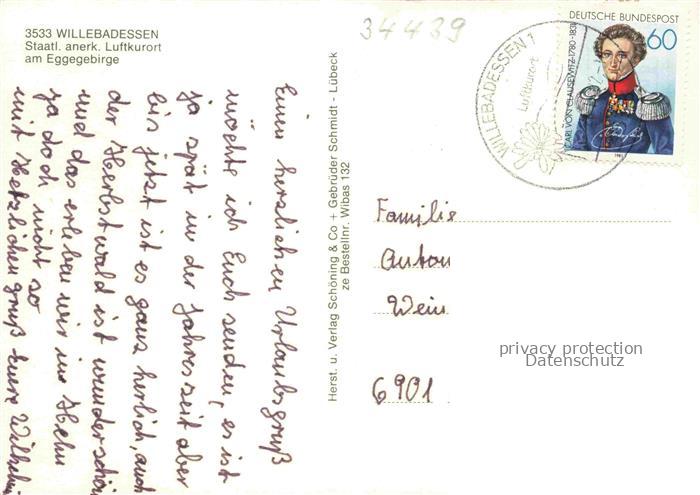 3533 WILLEBADESSEN
Staatl. anerk. Luftkurort
am Eggegebirge
34439
DEUTSCHE BUNDESPOST
60
CARL VON CLAUSEWITZ · 1780-1831
1981
WILLEBADESSEN 1
Luftkurort
Einen herzlichen Urlaubsgruß
möchte ich Euch senden, es ist
ja spät in der Jahreszeit aber
bis jetzt ist es ganz herlich, auch
der Herbstwald ist wunderschön
und das erleben wir im
ja doch nicht so
mit Herzlichen gruß eure Wilhelm
Herst. u. Verlag Schöning & Co + Gebrüder Schmidt - Lübeck
ze Bestellnr. Wibas 132
Familie
Anton
Wein
6901
privacy protection
Datenschutz